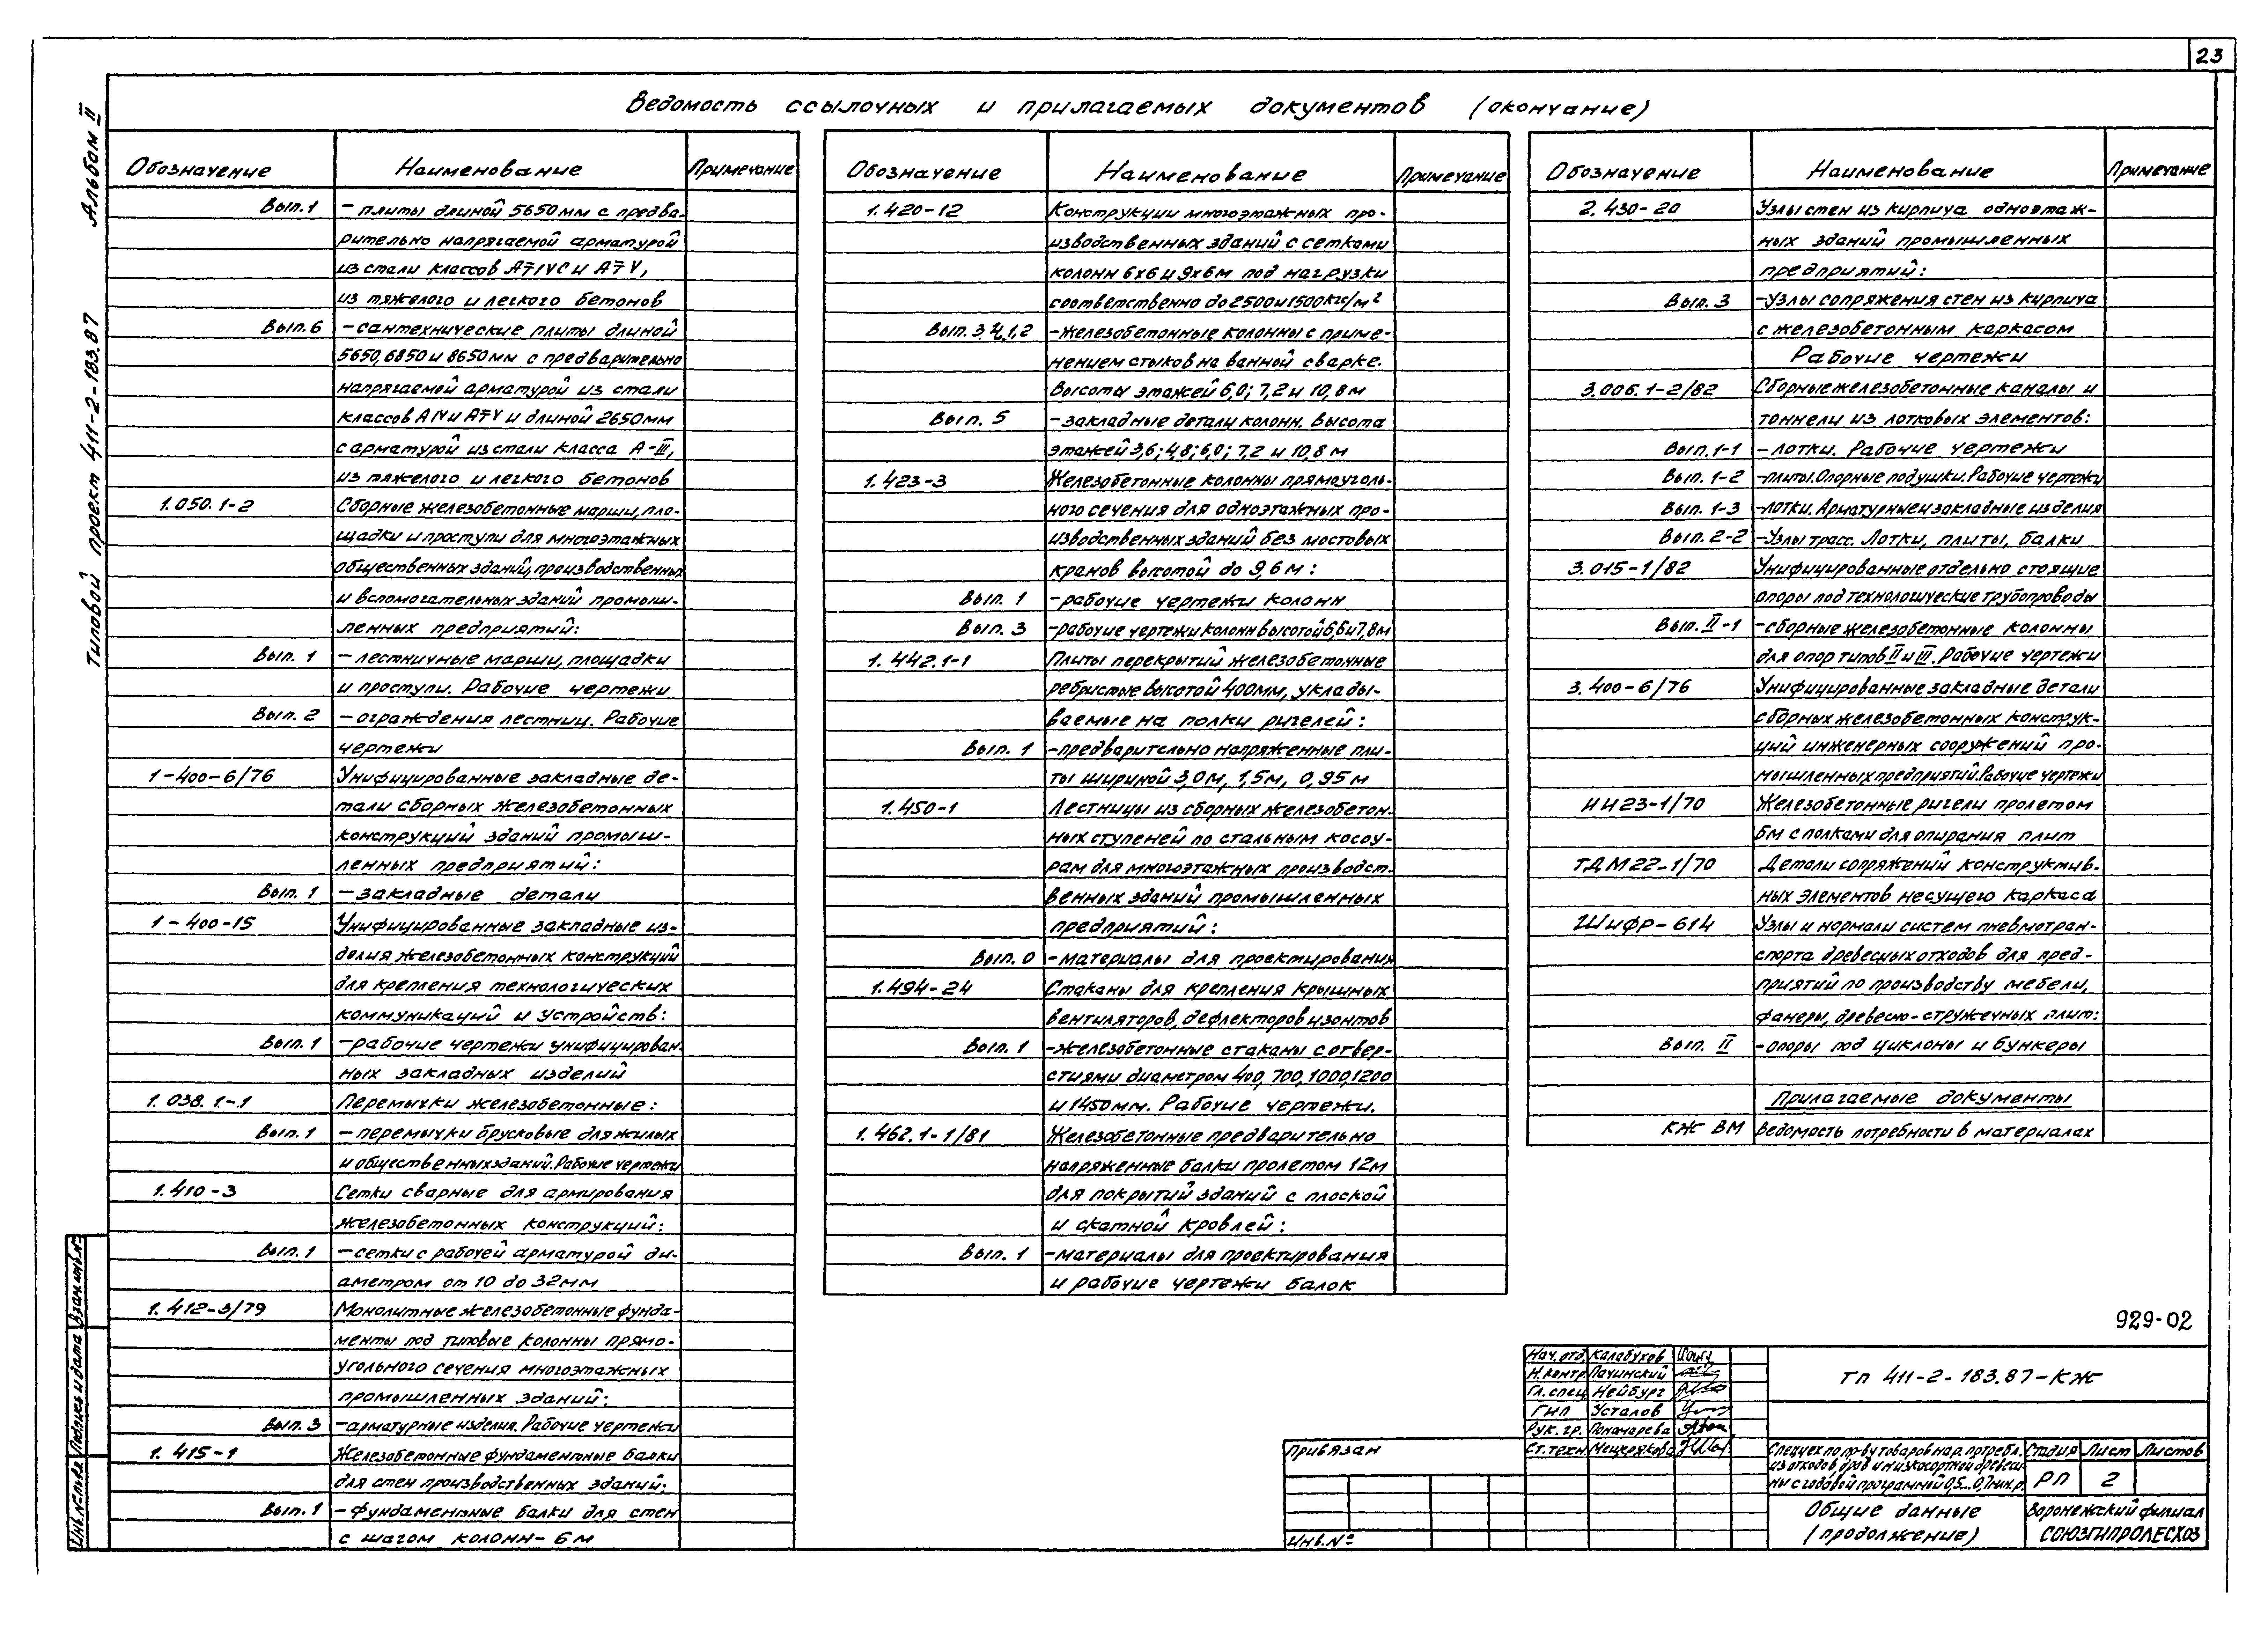 23
Альбом II
Типовой проект 411-2-183.87
Ведомость ссылочных и прилагаемых документов (окончание)
Обозначение Наименование Примечание
Вып.1 – плиты длиной 5650мм с предва-
рительно напрягаемой арматурой
из стали классов АТ-IVС и АТ-V,
из тяжелого и легкого бетонов
Вып.6 – сантехнические плиты длиной
5650, 6850 и 8650мм с предварительно
напрягаемой арматурой из стали
классов и длиной 2650мм
с арматурой из стали класса А-III,
из тяжелого и легкого бетонов
1.050.1-2 Сборные железобетонные марши, пло-
щадки и проступи для многоэтажных
общественных зданий, производственных
и вспомогательных зданий промыш-
ленных предприятий:
Вып. 1 – лестничные марши, площадки
и проступи. Рабочие чертежи
Вып. 2 – ограждения лестниц. Рабочие
чертежи
1-400-6/76 Унифицированные закладные де-
тали сборных железобетонных
конструкций зданий промыш-
ленных предприятий:
Вып. 1 – закладные детали
1-400-15 Унифицированные закладные из-
делия железобетонных конструкций
для крепления технологических
коммуникаций и устройств:
Вып. 1 – рабочие чертежи унифицирован-
ных закладных изделий
1.038.1-1 Перемычки железобетонные:
Вып. 1 – перемычки брусковые для жилых
и общественных зданий. Рабочие чертежи
1.410-3 Сетки сварные для армирования
железобетонных конструкций:
Вып. 1 – сетки с рабочей арматурой ди-
аметром от 10 до 32мм
1.412-3/79 Монолитные железобетонные фунда-
менты под типовые колонны прямо-
угольного сечения многоэтажных
промышленных зданий:
Вып. 3 – арматурные изделия. Рабочие чертежи
1.415-1 Железобетонные фундаментные балки
для стен производственных зданий:
Вып. 1 – фундаментные балки для стен
с шагом колонн – 6м
Обозначение Наименование Примечание
1.420-12 Конструкции многоэтажных про-
изводственных зданий с сетками
колонн 6х6 и 9х6м под нагрузки
соответственно до 2500 и 1500кгс/м²
Вып. 3.4,1,2 – железобетонные колонны с приме-
нением стыков на ванной сварке.
Высоты этажей 6,0; 7,2 и 10,8м
Вып. 5 – закладные детали колонн. Высота
этажей 3,6; 4,8; 6,0; 7,2 и 10,8м
1.423-3 Железобетонные колонны прямоуголь-
ного сечения для одноэтажных про-
изводственных зданий без мостовых
кранов высотой до 9,6м:
Вып. 1 – рабочие чертежи колонн
Вып. 3 – рабочие чертежи колонн высотой 6,6 и 7,8м
1.442.1-1 Плиты перекрытий железобетонные
ребристые высотой 400мм, уклады-
ваемые на полки ригелей:
Вып. 1 – предварительно напряженные пли-
ты шириной 3,0м, 1,5м, 0,95м
1.450-1 Лестницы из сборных железобетон-
ных ступеней по стальным косоу-
рам для многоэтажных производст-
венных зданий промышленных
предприятий:
Вып. 0 – материалы для проектирования
1.494-24 Стаканы для крепления крышных
вентиляторов, дефлекторов и зонтов
Вып. 1 – железобетонные стаканы с отвер-
стиями диаметром 400, 700, 1000, 1200
и 1450мм. Рабочие чертежи.
1.462.1-1/81 Железобетонные предварительно
напряженные балки пролетом 12м
для покрытий зданий с плоской
и скатной кровлей:
Вып. 1 – материалы для проектирования
и рабочие чертежи балок
Обозначение Наименование Примечание
2.430-20 Узлы стен из кирпича одноэтаж-
ных зданий промышленных
предприятий:
Вып. 3 – узлы сопряжения стен из кирпича
с железобетонным каркасом
Рабочие чертежи
3.006.1-2/82 Сборные железобетонные каналы и
тоннели из лотковых элементов:
Вып. 1-1 – лотки. Рабочие чертежи
Вып. 1-2 – плиты. Опорные подушки. Рабочие чертежи
Вып. 1-3 – лотки. Арматурные и закладные изделия
Вып. 2-2 – Узлы трасс. Лотки, плиты, балки
3.015-1/82 Унифицированные отдельно стоящие
опоры под технологические трубопроводы
Вып. II-1 – сборные железобетонные колонны
для опор типов II и III. Рабочие чертежи
3.400-6/76 Унифицированные закладные детали
сборных железобетонных конструк-
ций инженерных сооружений про-
мышленных предприятий. Рабочие чертежи
ИИ23-1/70 Железобетонные ригели пролетом
6м с полками для опирания плит
ТДМ22-1/70 Детали сопряжений конструктив-
ных элементов несущего каркаса
Шифр-614 Узлы и нормали систем пневмотран-
спорта древесных отходов для пред-
приятий по производству мебели,
фанеры, древесно-стружечных плит:
Вып. II – опоры под циклоны и бункеры
Прилагаемые документы
КЖ ВМ Ведомость потребности в материалах
929-02
Нач.отд. Калабухов
Н.контр. Пачинский
Гл.спец. Нейбург
ГИП Усталов
Рук.гр. Пономарева
Ст.техн. Мещерякова
ТП 411-2-183.87-КЖ
Спеццех по пр-ву товаров нар. потребл.
из отходов дров и низкосортной древеси-
ны с годовой программой 0,5...0,7млн.р.
Стадия Лист Листов
РП 2
Общие данные
(продолжение)
Воронежский филиал
СОЮЗГИПРОЛЕСХОЗ
Привязан
Инв.№
Взам.инв.№
Подпись и дата
Инв.№подл.